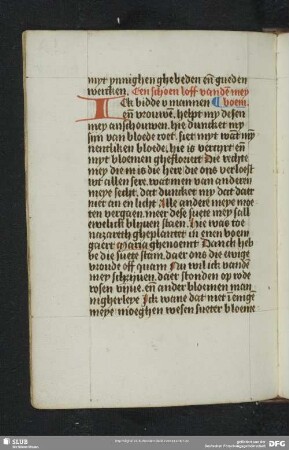 myt ynnighen ghebeden en̄ gueden
wercken. Een schoen loff van dē mey
Ick bidde v mannen ¶ boem.
en̄ vrouwē, helpt my desen
mey anschouwen, hie duncket my
sijn van bloede roet. siet myt wat my
nentliken bloede, hie is verciirt en̄
myt bloemen ghefloriert Die rechte
mey die in is die here, die ons verloest
wt allen sere, wat men van anderen
meye secht, dat duncket my dat daer
niet an en licht Alle andere meye moe
ten vergaen, meer dese suete mey sall
ewelick blyuen staen. Hie was toe
nazareth gheplantet in enen boem
gaert Maria ghenoemt Danck heb
be die suete stam, daer ons die ewige
vronde off quam Nu wil ick vandē
mey schryuen, daer stonden op rode
rosen vijue, en̄ ander bloemen man
nigherleye Ick wane dat niet enige
meye moeghen wesen sueter bloeme
SLUB
DFG